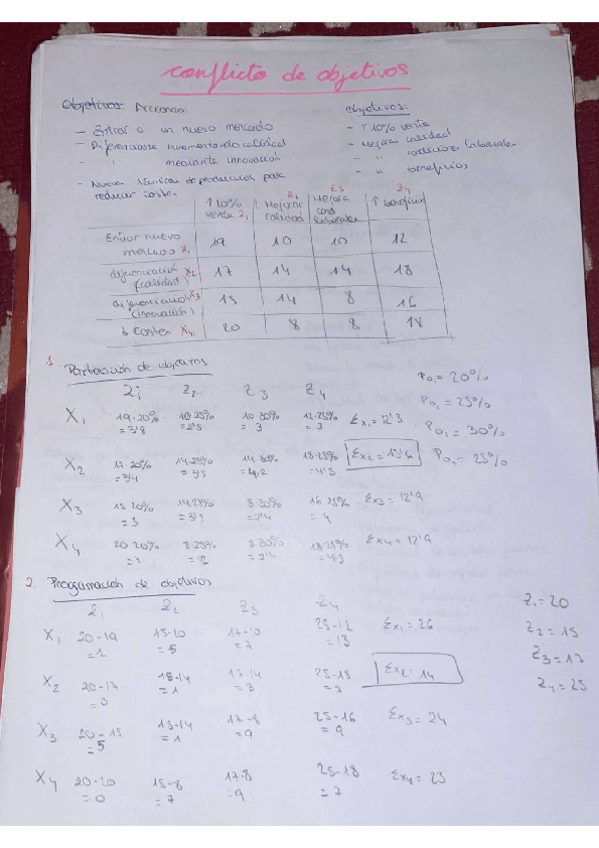 Conflicto de objetivos
Objetivos: Acciones:
objetivos:
- Entrar a un nuevo mercado
- Diferenciarse incrementando calidad
- " mediante innovación
- Nuevas técnicas de producción para reducir costes
- ↑ 10% venta
- Mejorar calidad
- " condiciones laborales
- " beneficios
↑ 10% venta Z1 | Mejorar calidad Z2 | Mejora cond laborales Z3 | ↑ beneficio Z4
Entrar nuevo mercado X1 | 19 | 10 | 10 | 12
diferenciación (calidad) X2 | 17 | 14 | 14 | 18
(innovación) X3 | 15 | 14 | 8 | 16
↓ costes X4 | 20 | 8 | 8 | 18
1. Ponderación de objetivos
Z1 Z2 Z3 Z4
X1 19·20% =3'8 10·25% =2'5 10·30% =3 12·25% =3 Σx1=12'3
X2 17·20% =3'4 14·25% =3'5 14·30% =4,2 18·25% =4'5 Σx2=15'6
X3 15·20% =3 14·25% =3'5 8·30% =2'4 16·25% =4 Σx3=12'9
X4 20·20% =4 8·25% =2 8·30% =2'4 18·25% Σx4=12'9
Po1=20%
=25%
=30%
=25%
2. Programación de objetivos
Z1 Z2 Z3 Z4
X1 20-19 =1 15-10 =5 17-10 =7 25-12 =13 Σx1=26
X2 20-17 =3 15-14 =1 17-14 =3 25-18 Σx2=14
X3 20-15 =5 15-14 =1 17-8 =9 25-16 =9 Σx3=24
X4 20-20 =0 15-8 =7 17-8 =9 25-18 =7 Σx4=23
Z1=20
Z2=15
Z3=17
Z4=25